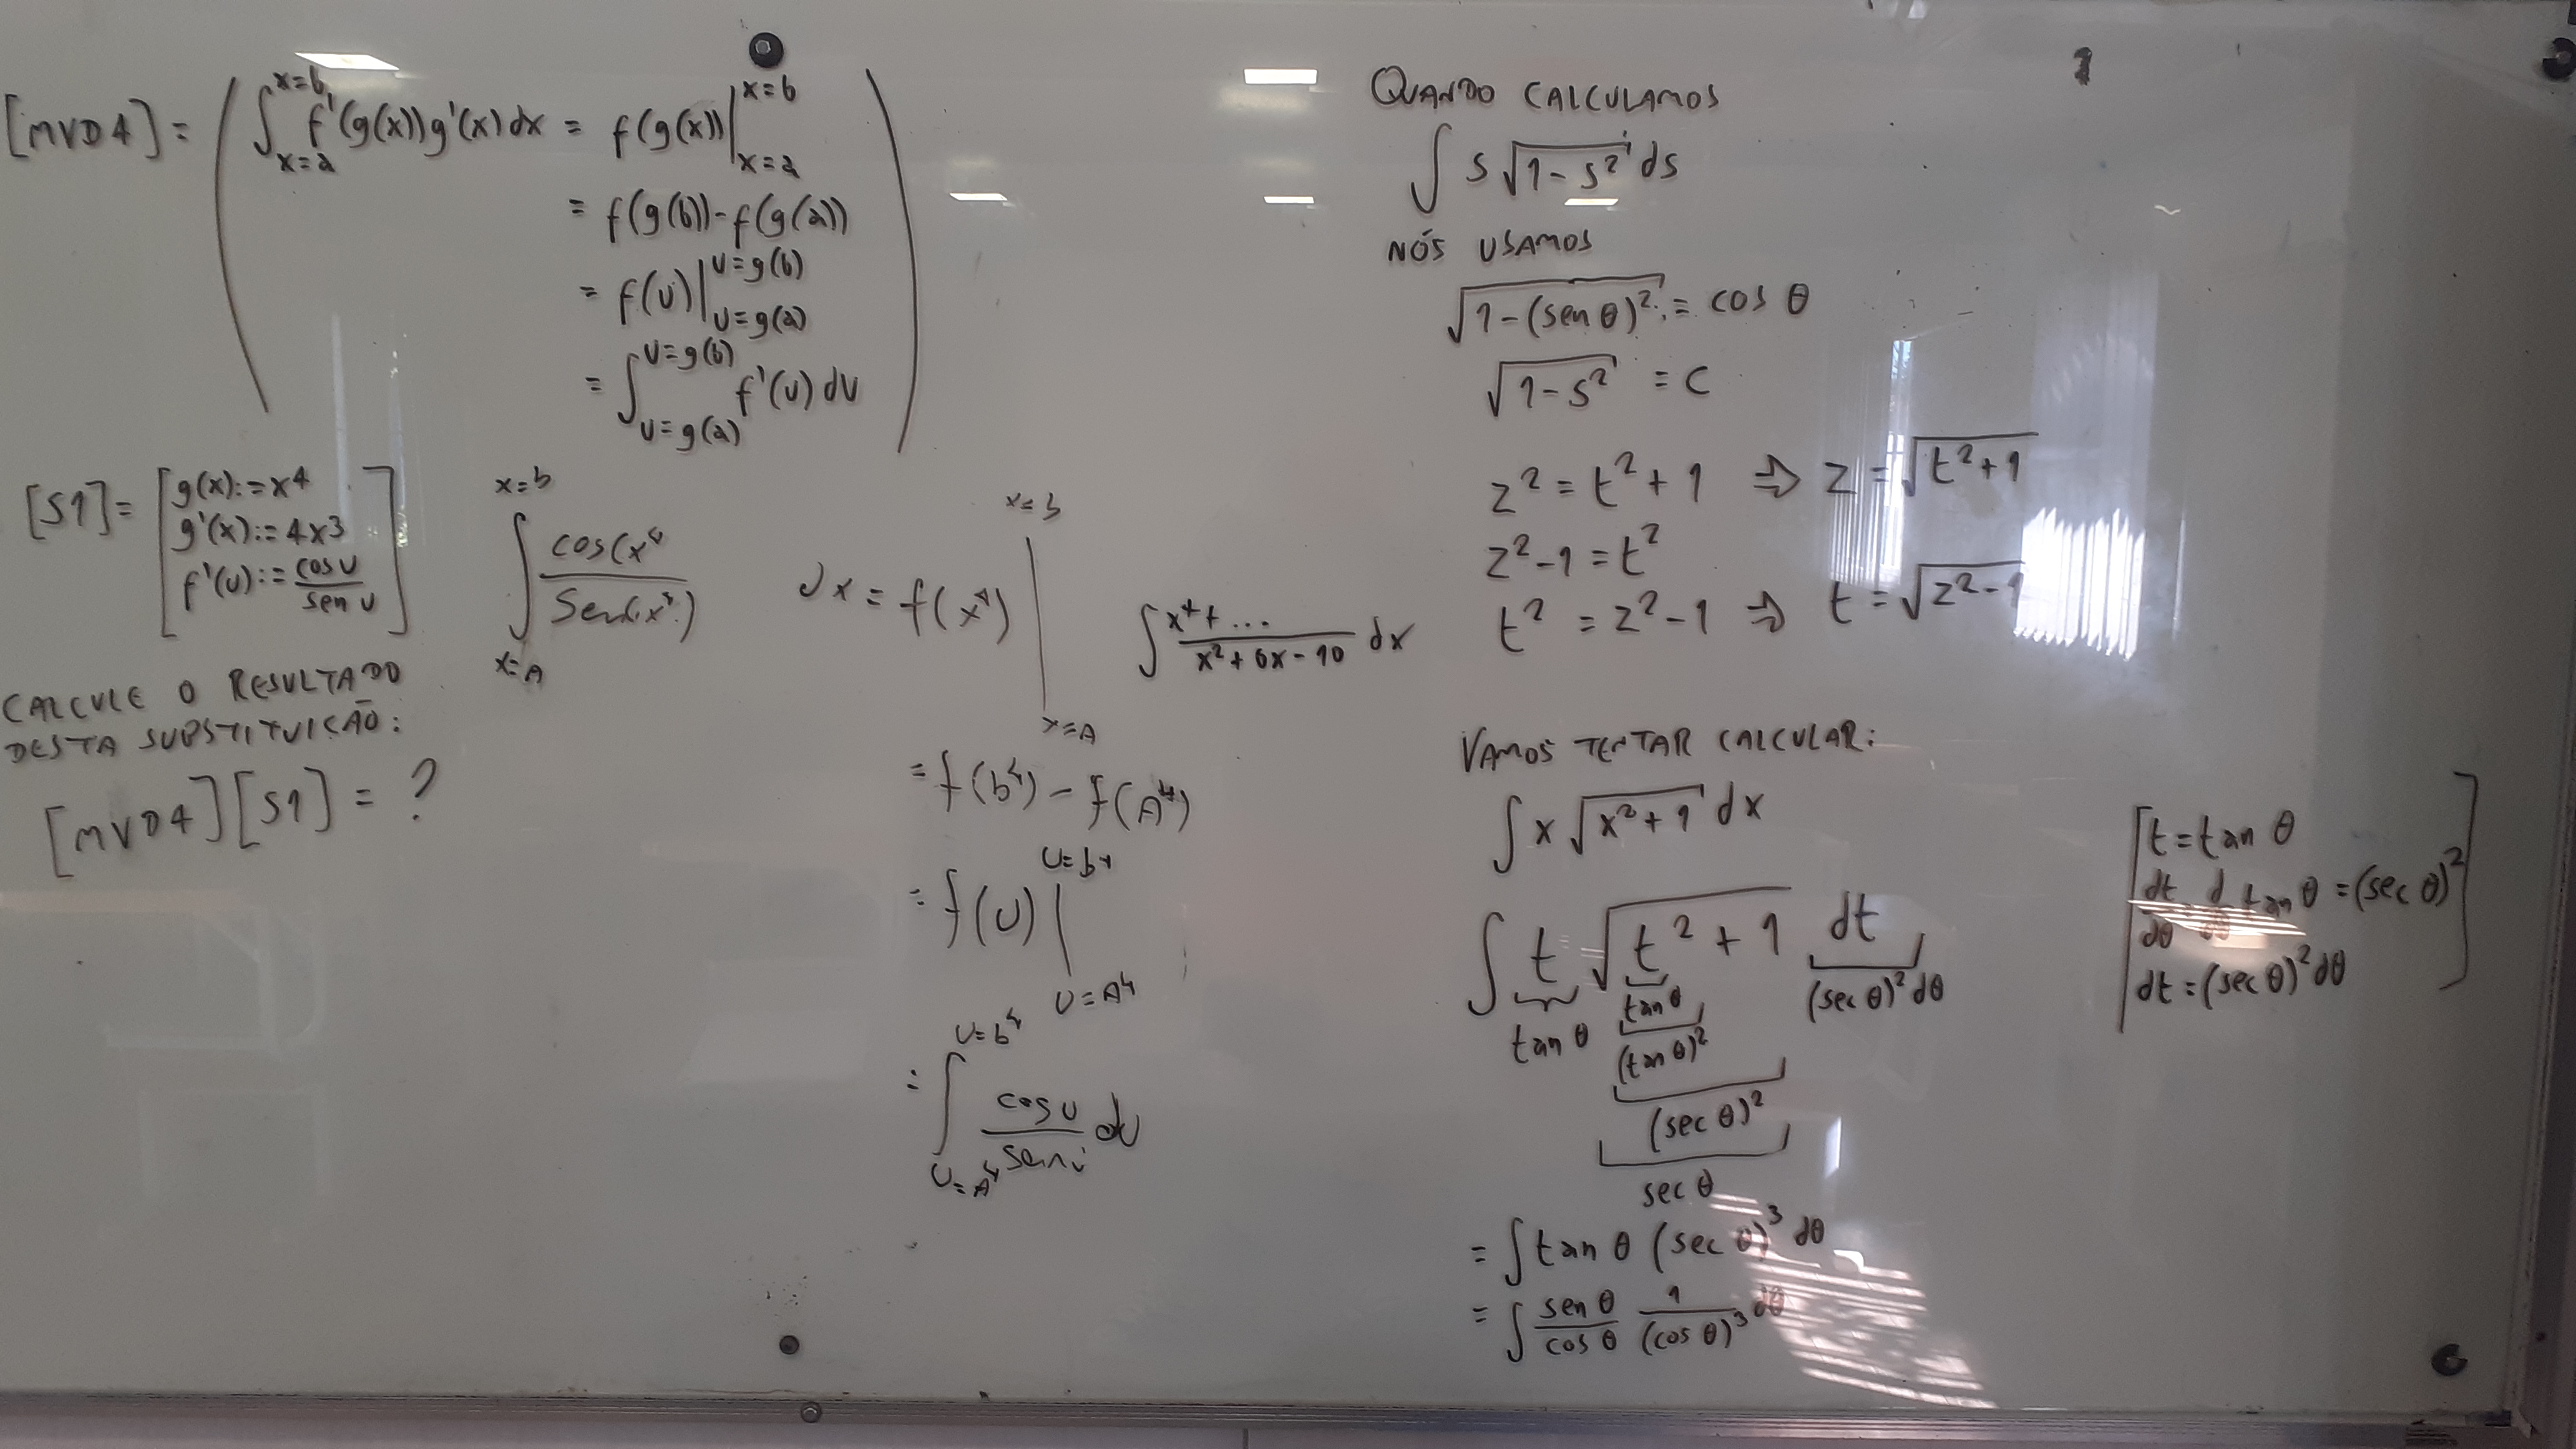 [MVD4] = ( ∫_{x=a}^{x=b} f'(g(x))g'(x)dx = f(g(x))|_{x=a}^{x=b}
= f(g(b))-f(g(a))
= f(u)|_{u=g(a)}^{u=g(b)}
= ∫_{u=g(a)}^{u=g(b)} f'(u)du )
[S1] = [ g(x):=x^4
g'(x):=4x^3
f'(u):= cos u / sen u ]
CALCULE O RESULTADO
DESTA SUBSTITUIÇÃO:
[MVD4][S1] = ?
∫_{x=A}^{x=b} cos(x^4 / Sen(x^4) dx = f(x^4) |_{x=A}^{x=b}
= f(b^4) - f(A^4)
= f(u) |_{u=A^4}^{u=b^4}
= ∫_{u=A^4}^{u=b^4} cos u / sen u du
∫ x^4+... / x^2+6x-10 dx
QUANDO CALCULAMOS
∫ s √(1-s^2) ds
NÓS USAMOS
√(1-(sen θ)^2) = cos θ
√(1-s^2) = c
z^2 = t^2+1 ⇒ z = √(t^2+1)
z^2-1 = t^2
t^2 = z^2-1 ⇒ t = √(z^2-1)
VAMOS TENTAR CALCULAR:
∫ x √(x^2+1) dx
∫ t √(t^2+1) dt
tan θ tan θ (sec θ)^2 dθ
(tan θ)^2
(sec θ)^2
sec θ
= ∫ tan θ (sec θ)^3 dθ
= ∫ sen θ / cos θ 1 / (cos θ)^3 dθ
[ t = tan θ
dt/dθ = d/dθ tan θ = (sec θ)^2
dt = (sec θ)^2 dθ ]